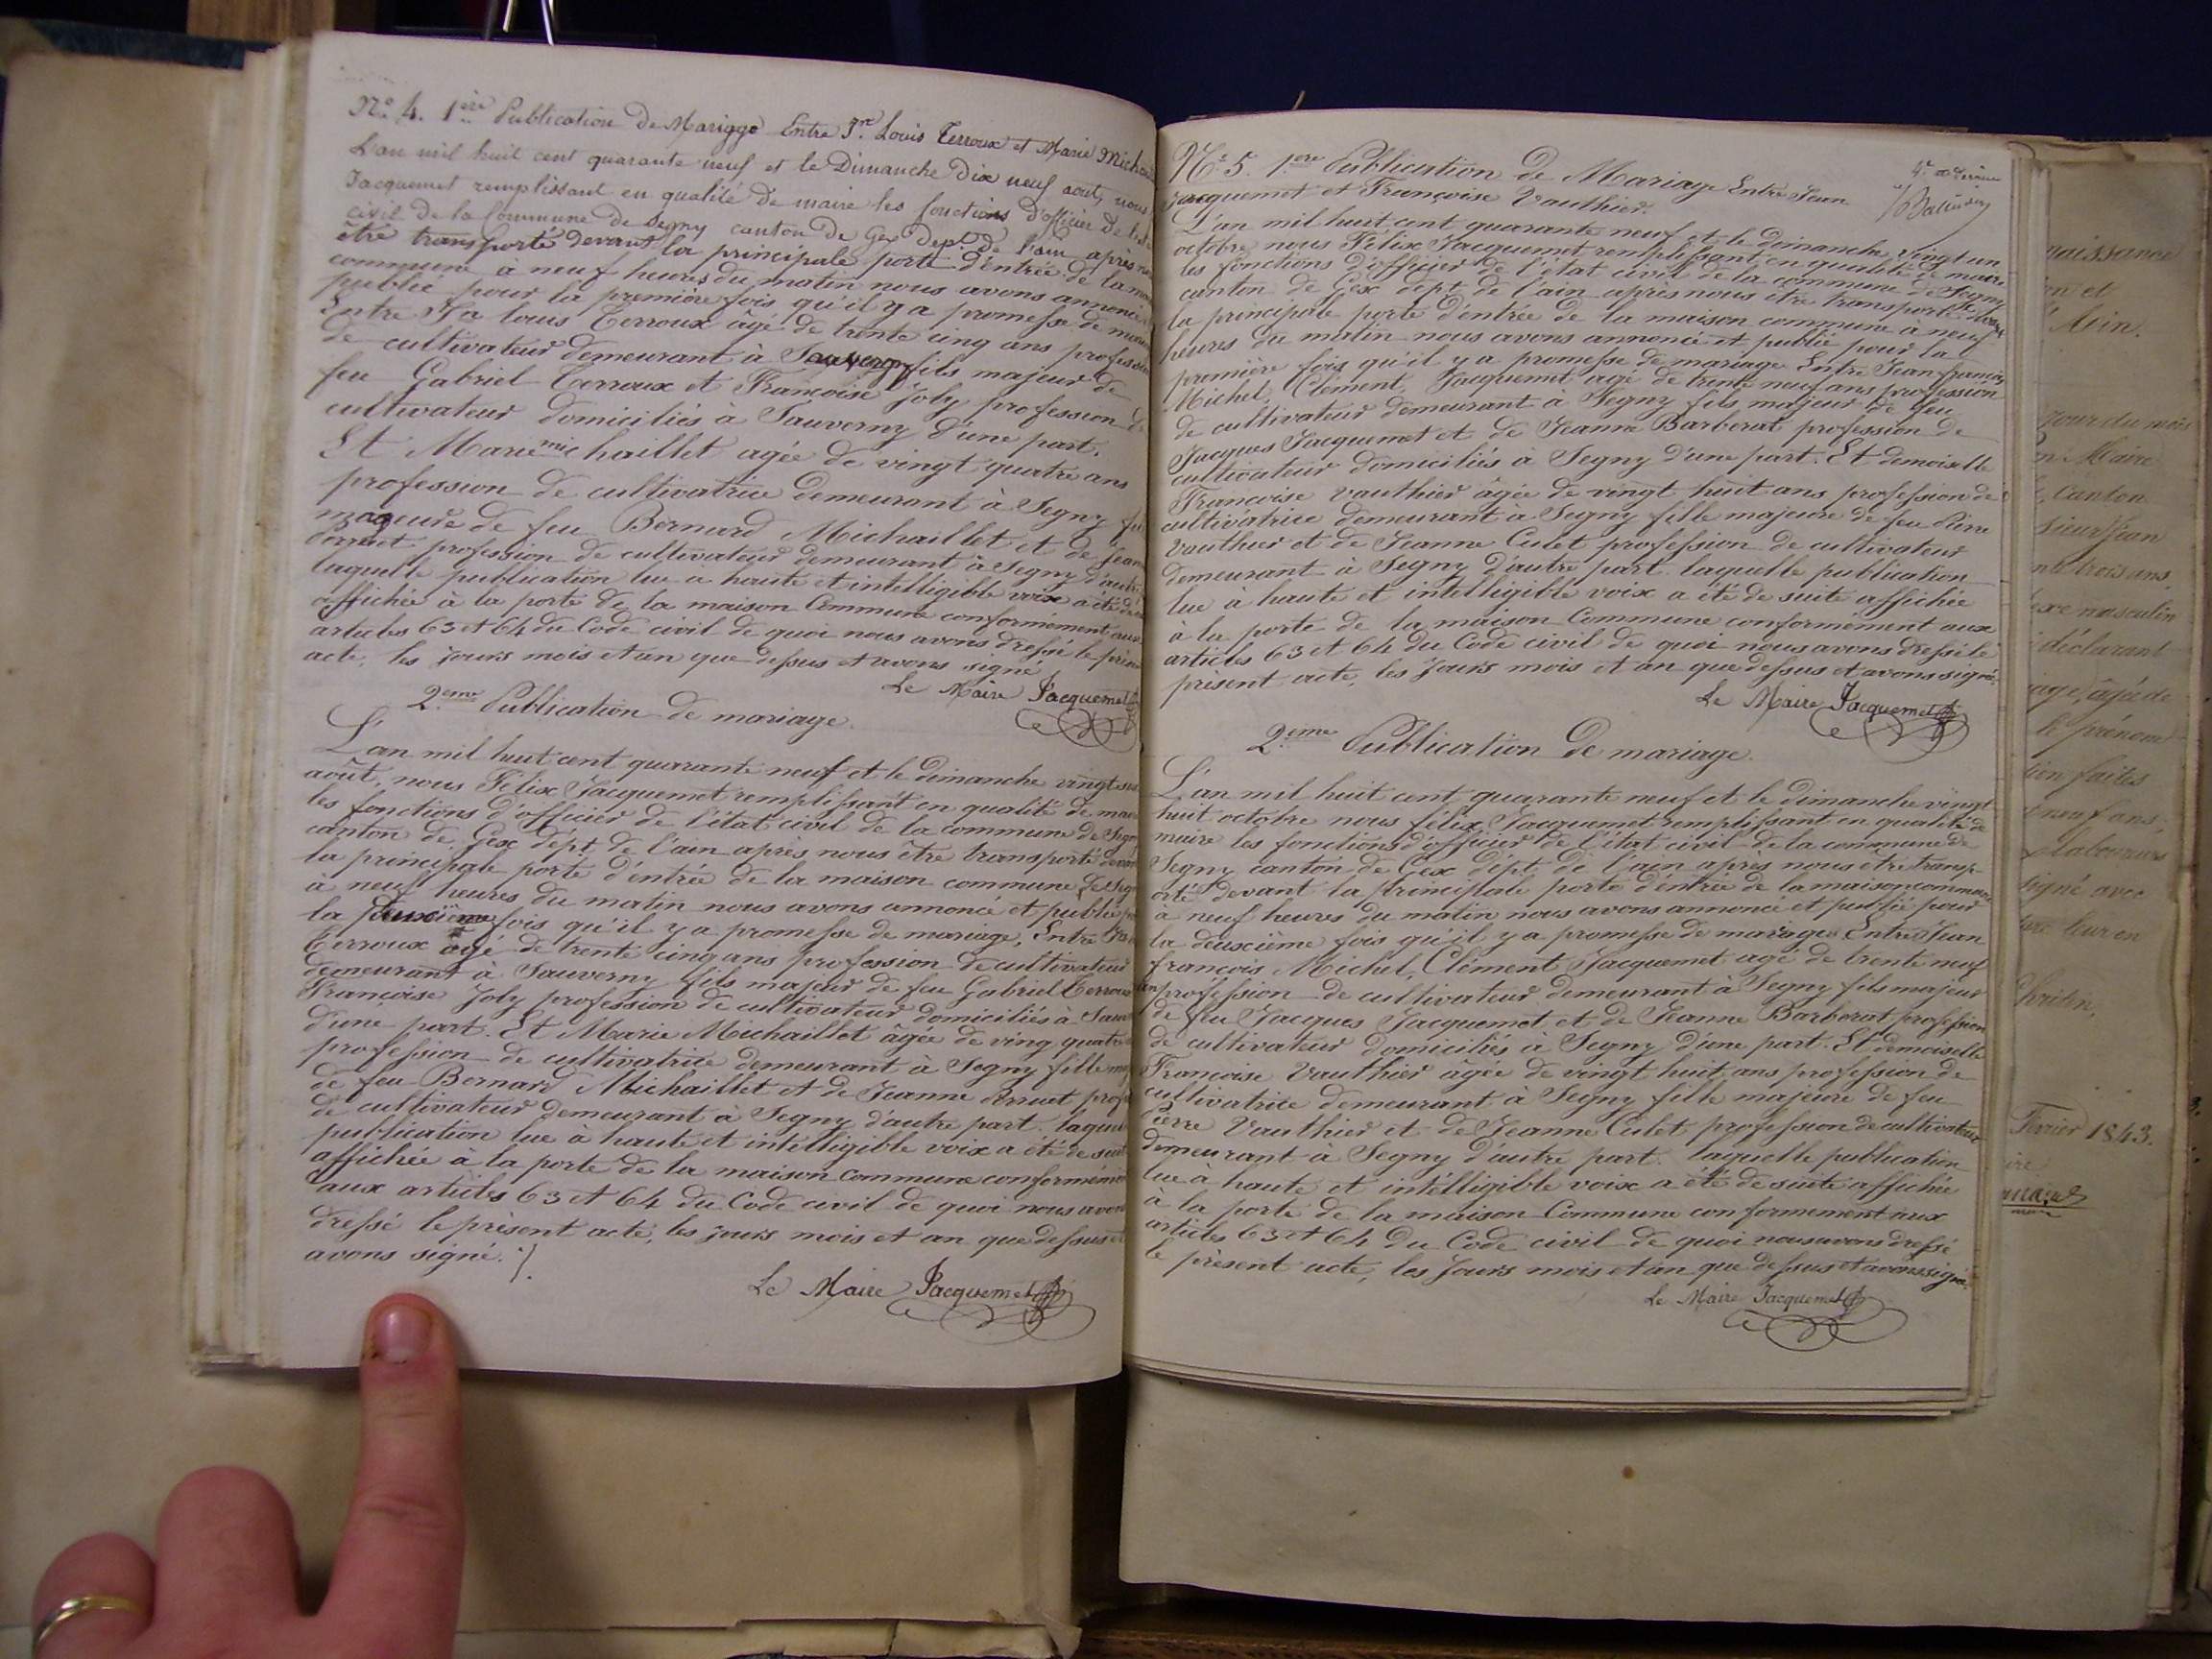 No 4. 1ère Publication De Mariage Entre Jn Louis Terroux et Marie Mich
L'an mil huit cent quarante neuf et le Dimanche Dix neuf août, nous
Jacquemet remplissant en qualité De maire les fonctions d'officier De
civil De la Commune De Segny canton De Gex Dept. De l'ain après
être transporté Devant la principale porte D'entrée De la
commune à neuf heures du matin nous avons annoncé
publié pour la première fois qu'il y a promesse de
Entre Louis Terroux âgé de trente cinq ans profession
de cultivateur demeurant à Sauverny fils majeur de
feu Gabriel Terroux et Françoise Joly profession de
cultivateur domiciliés à Sauverny d'une part.
Et Marie michaillet agée de vingt quatre ans
profession de cultivatrice demeurant à Segny
majeure de feu Bernard Michaillet et de
profession de cultivateur demeurant à Segny d'autre
laquelle publication lue a haute et intelligible voix a été de
affichée à la porte de la maison Commune conformement aux
articles 63 et 64 du Code civil de quoi nous avons dressé le
acte, les jours mois et an que dessus et avons signé
Le Maire Jacquemet
2eme Publication de mariage.
L'an mil huit cent quarante neuf et le dimanche vingt
août, nous Félix Jacquemet remplissant en qualité de
les fonctions d'officier de l'état civil de la commune de
canton de Gex dépt de l'ain après nous être transporté
la principale porte d'entrée de la maison commune de
à neuf heures du matin nous avons annoncé et publié
la deuxième fois qu'il y a promesse de mariage, Entre
Terroux âgé de trente cinq ans profession de cultivateur
demeurant à Sauverny fils majeur de feu Gabriel Terroux
Françoise Joly profession de cultivateur domiciliés à
d'une part. Et Marie Michaillet âgée de ving quatre
profession de cultivatrice demeurant à Segny fille
de feu Bernard Michaillet et de Jeanne
de cultivateur demeurant à Segny d'autre part.
publication lue à haute et intelligible voix a été de
affichée à la porte de la maison commune
aux articles 63 et 64 du Code civil de quoi nous
dressé le présent acte, les jours mois et an que dessus et
avons signé.
Le Maire Jacquemet
No 5. 1ere Publication de Mariage Entre Jean
Jacquemet et Françoise Vauthier.
L'an mil huit cent quarante neuf et le dimanche vingt un
octobre nous Félix Jacquemet remplissant en qualité de maire
les fonctions d'officier de l'état civil de la commune de Segny
canton de Gex dépt de l'ain après nous être transporté devant
la principale porte d'entrée de la maison commune à neuf
heures du matin nous avons annoncé et publié pour la
première fois qu'il y a promesse de mariage Entre Jean françois
Michel, Clément Jacquemet agé de trente neuf ans profession
de cultivateur demeurant à Segny fils majeur de feu
Jacques Jacquemet et de Jeanne Barberat profession de
cultivateur domiciliés à Segny d'une part. Et demoiselle
Françoise Vauthier âgée de vingt huit ans profession de
cultivatrice demeurant à Segny fille majeure de feu Pierre
Vauthier et de Jeanne Culet profession de cultivateur
demeurant à Segny d'autre part. laquelle publication
lue à haute et intelligible voix a été de suite affichée
à la porte de la maison Commune conformement aux
articles 63 et 64 du Code civil de quoi nous avons dressé le
présent acte, les jours mois et an que dessus et avons signé.
Le Maire Jacquemet
2ème Publication de mariage.
L'an mil huit cent quarante neuf et le dimanche vingt
huit octobre nous félix Jacquemet remplissant en qualité de
maire les fonctions d'officier de l'état civil de la commune de
Segny canton de Gex dépt de l'ain après nous être transp-
orté devant la principale porte d'entrée de la maison commune
à neuf heures du matin nous avons annoncé et publié pour
la deuxième fois qu'il y a promesse de mariage Entre Jean
françois Michel, Clément Jacquemet agé de trente neuf
profession de cultivateur demeurant à Segny fils majeur
de feu Jacques Jacquemet et de Jeanne Barberat profession
de cultivateur domiciliés à Segny d'une part. Et demoiselle
Françoise Vauthier âgée de vingt huit ans profession de
cultivatrice demeurant à Segny fille majeure de feu
Pierre Vauthier et de Jeanne Culet profession de cultivateur
demeurant à Segny d'autre part. laquelle publication
lue à haute et intelligible voix a été de suite affichée
à la porte de la maison Commune conformement aux
articles 63 et 64 du Code civil de quoi nous avons dressé
le présent acte, les jours mois et an que dessus et avons signé.
Le Maire Jacquemet
naissance
et
Ain.
jour du mois
Maire
Canton
sieur Jean
trois ans
sexe masculin
déclarant
âgée de
le prénom
faites
neuf ans,
Laboureurs
signé avec
leur en
Février 1843.